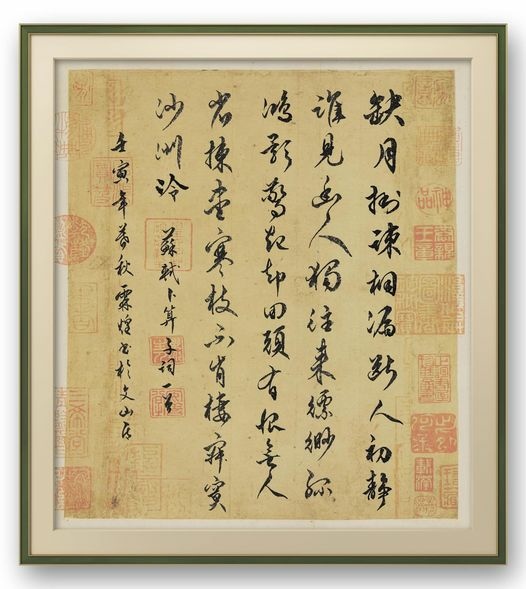 缺月掛疎桐漏斷人初靜
誰見幽人獨往來縹緲孤
鴻影驚起却回頭有恨無人
省揀盡寒枝不肯棲寂寞
沙洲冷
蘇軾卜算子詞一首
壬寅年暮秋霖煌書於文山居